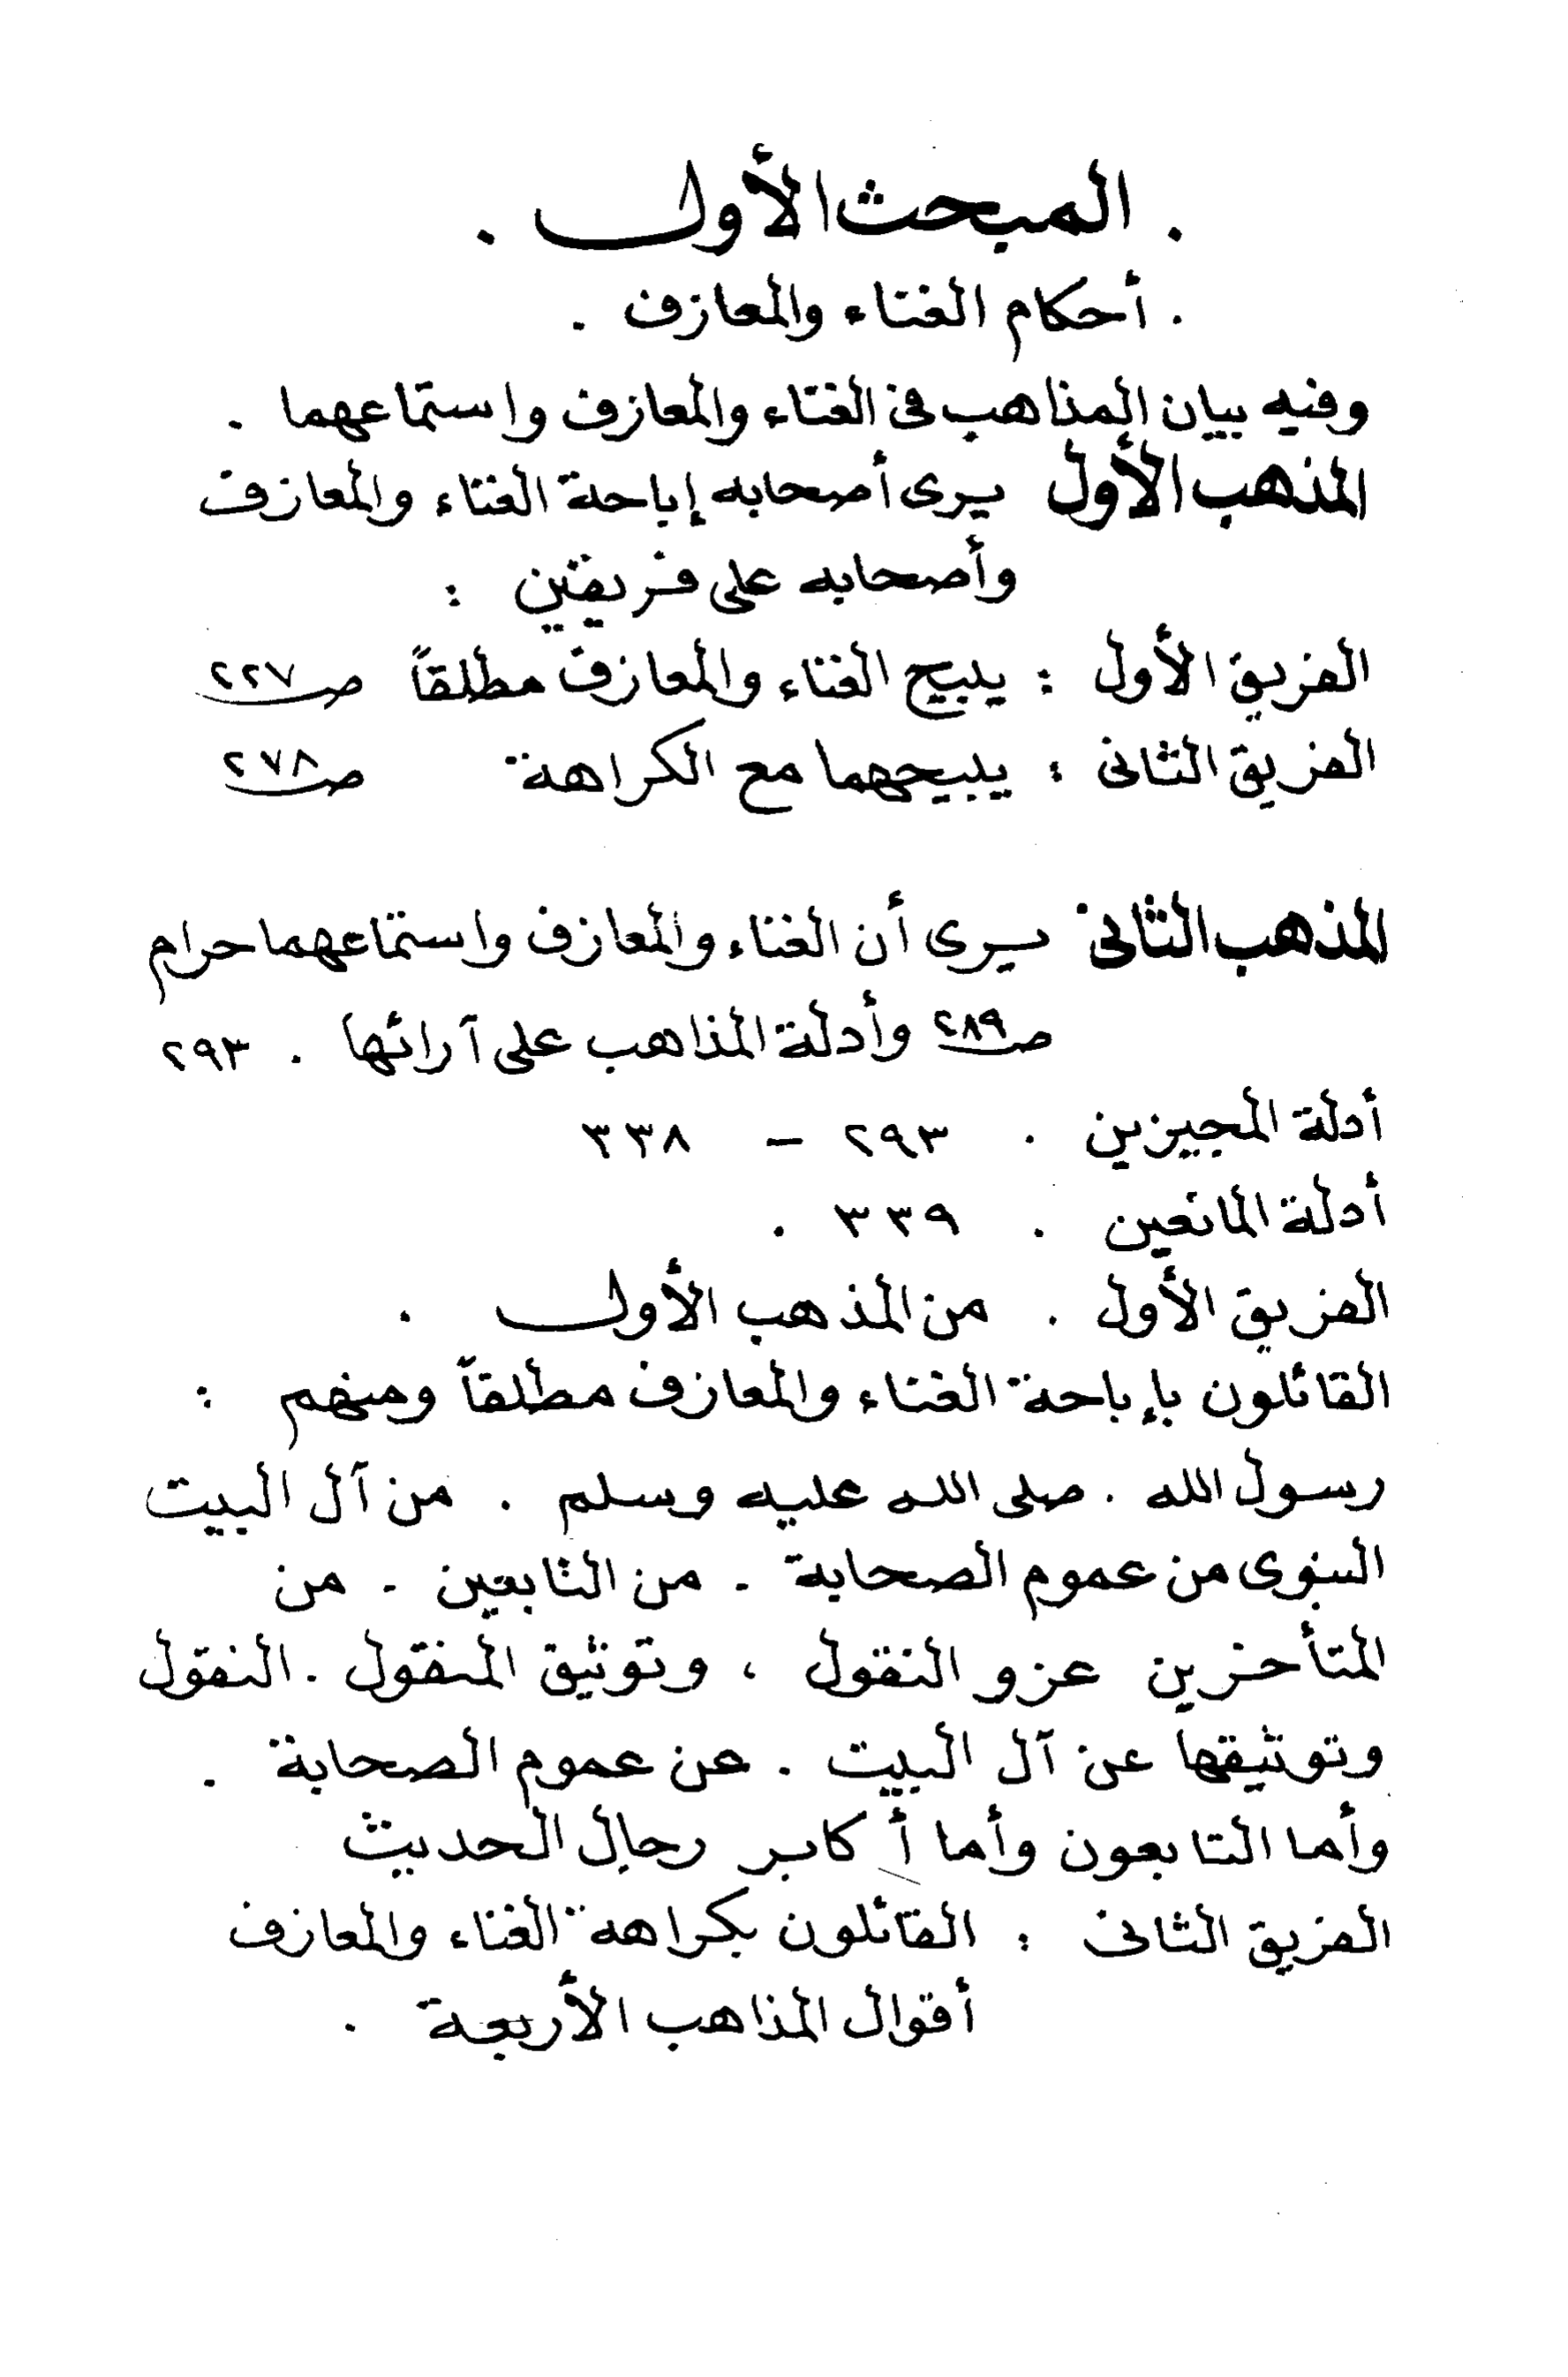 . المبحث الأول .
. أحكام الغناء والمعازف .
وفيه بيان المذاهب فى الغناء والمعازف واستماعهما .
المذهب الأول يرى أصحابه إباحة الغناء والمعازف
وأصحابه على فريقين :
الفريق الأول : يبيح الغناء والمعازف مطلقاً ص ٢٢٧
الفريق الثانى : يبيحهما مع الكراهة ص ٢٧٨
المذهب الثانى يرى أن الغناء والمعازف واستماعهما حرام
ص ٢٨٩ وأدلة المذاهب على آرائها . ٢٩٣
أدلة المجيزين . ٢٩٣ – ٣٣٨
أدلة المانعين . ٣٣٩ .
الفريق الأول . من المذهب الأول .
القائلون بإباحة الغناء والمعازف مطلقاً ومنهم :
رسول الله . صلى الله عليه وسلم . من آل البيت
النبوى من عموم الصحابة . من التابعين . من
المتأخرين عزو النقول ، وتوثيق المنقول . النقول
وتوثيقها عن آل البيت . عن عموم الصحابة .
وأما التابعون وأما أكابر رجال الحديث
الفريق الثانى : القائلون بكراهة الغناء والمعازف
أقوال المذاهب الأربعة .